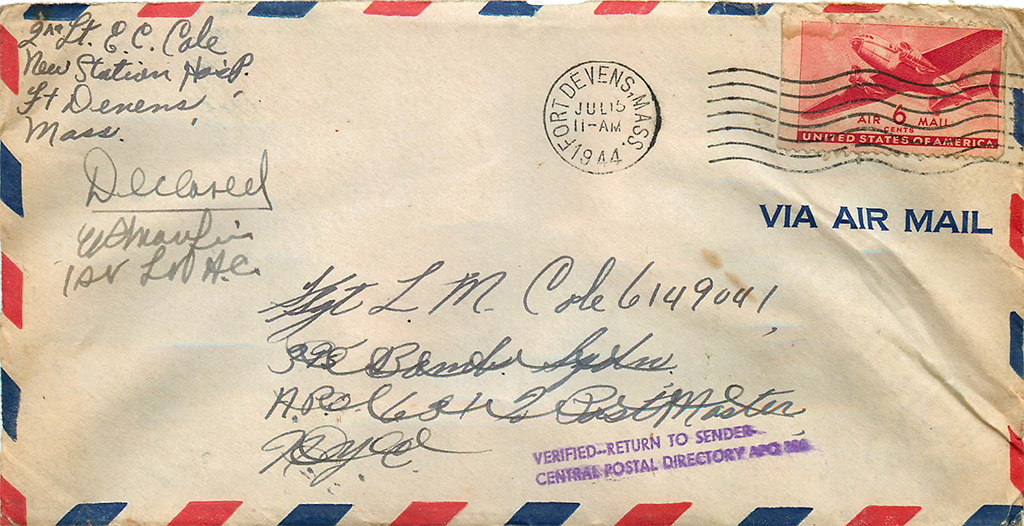 2nd Lt. E. C. Cole
New Station Hosp.
Ft Devens
Mass.
FORT DEVENS, MASS.
JUL 15
11-AM
1944
AIR 6 MAIL
CENTS
UNITED STATES OF AMERICA
VIA AIR MAIL
1st Lt A.C.
Sgt L. M. Cole 6149041
Bomb. Sqdn.
A.P.O. Post Master
VERIFIED--RETURN TO SENDER
CENTRAL POSTAL DIRECTORY APO